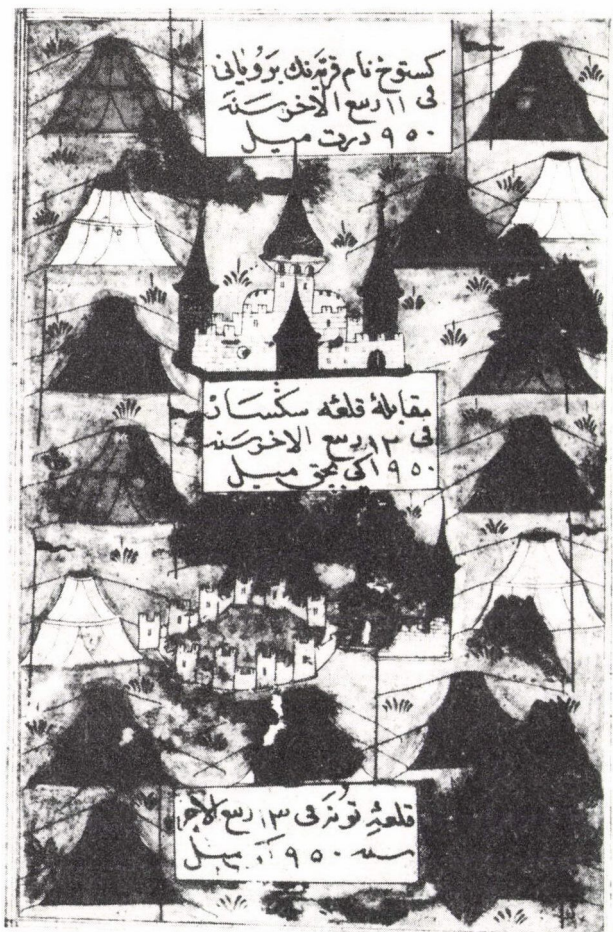 كستوخ نام قريه‌نك بروياني
فى ١١ ربيع الاخر سنة
٩٥٠ درت ميل
مقابلهٔ قلعه سكسار
فى ١٢ ربيع الاخر سنة
٩٥٠ ميل
قلعهٔ تونه فى ١٣ ربيع الاخر
سنه ٩٥٠ ميل